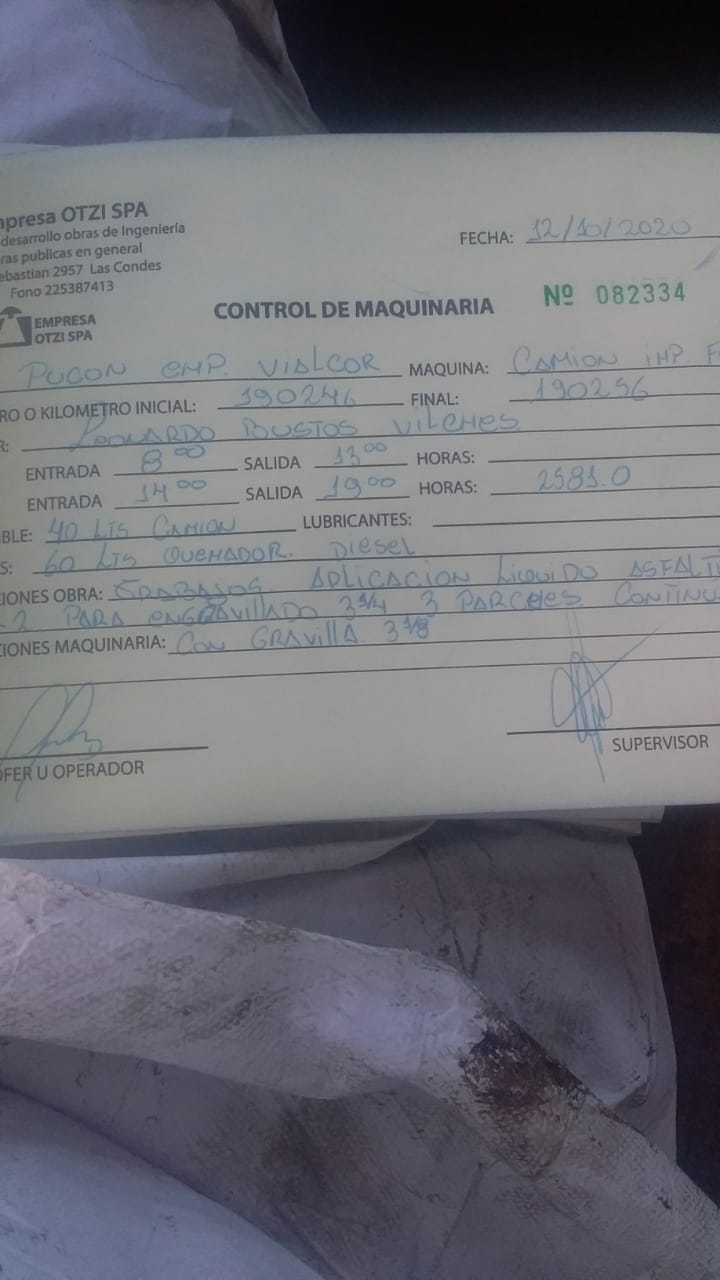 mpresa OTZI SPA
desarrollo obras de Ingeniería
ras publicas en general
ebastian 2957 Las Condes
Fono 225387413
EMPRESA
OTZI SPA
FECHA: 12/10/2020
CONTROL DE MAQUINARIA Nº 082334
PUCON EMP. VIALCOR MAQUINA: CAMION IMP F
RO O KILOMETRO INICIAL: 190246 FINAL: 190256
R: LEONARDO BUSTOS VILCHES
ENTRADA 8 00 SALIDA 13 00 HORAS:
ENTRADA 14 00 SALIDA 19 00 HORAS: 2581.0
BLE: 40 LTS CAMION LUBRICANTES:
S: 60 LTS QUEMADOR. DIESEL
CIONES OBRA: TRABAJOS. APLICACION LIQUIDO ASFALTI
-2 PARA ENGRAVILLADO 3 PARCELES CONTINU
CIONES MAQUINARIA: CON GRAVILLA 3/8
OFER U OPERADOR
SUPERVISOR